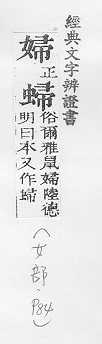 經典文字辨證書
婦正
俗爾雅鼠婦陸德
明曰本又作
(女部·P84)